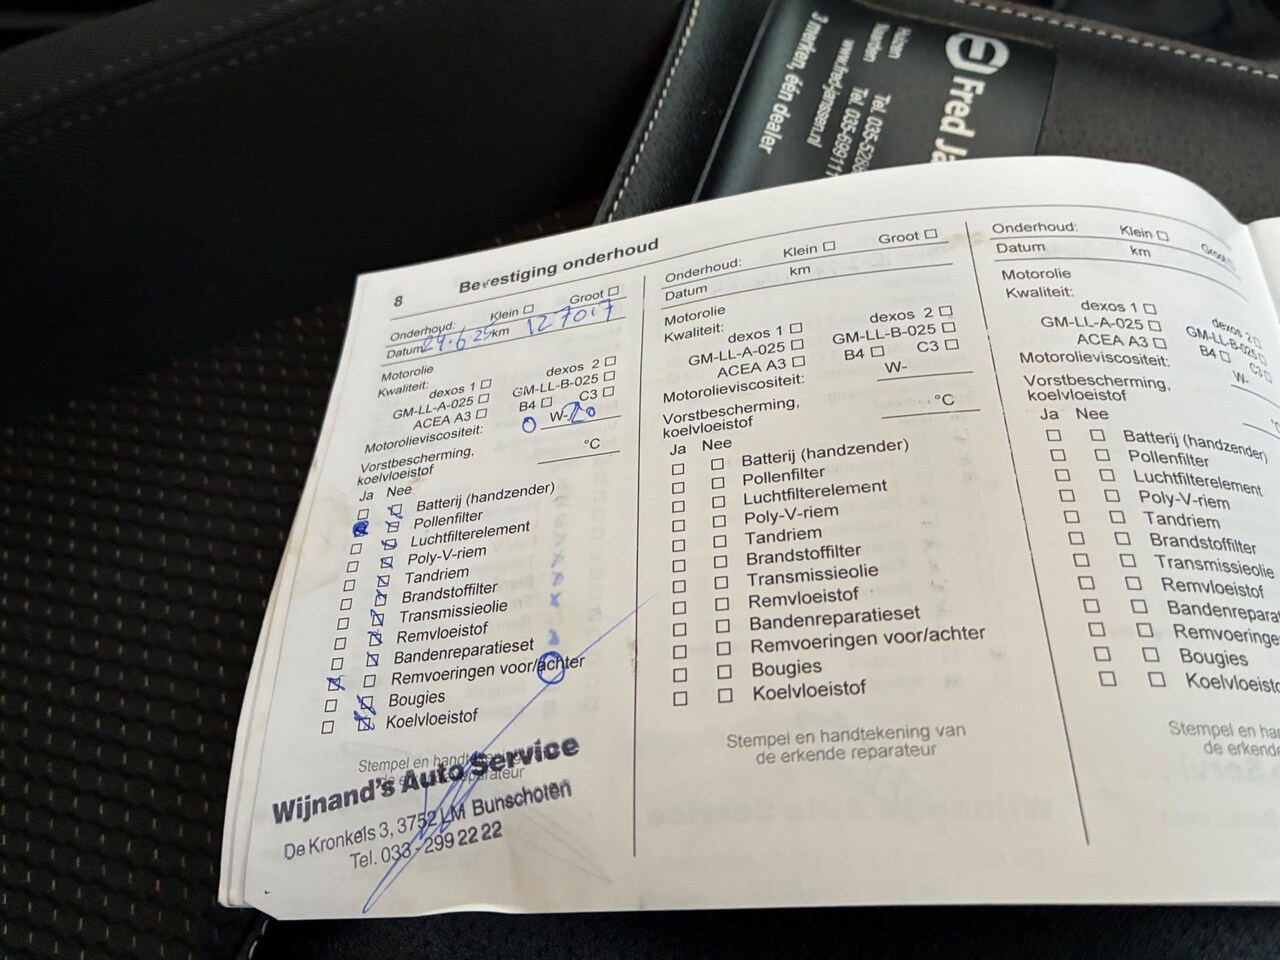 Fred
Huizen Tel. 035-5286
Naarden Tel. 035-699111
www.fred-janssen.nl
3 merken, één dealer
8 Bevestiging onderhoud
Onderhoud: Klein Groot
Datum 24.6.25 km 127017
Motorolie
Kwaliteit: dexos 1 dexos 2
GM-LL-A-025 GM-LL-B-025
ACEA A3 B4 C3
Motorolieviscositeit: 0 W-20
Vorstbescherming,
koelvloeistof °C
Ja Nee
Batterij (handzender)
Pollenfilter
Luchtfilterelement
Poly-V-riem
Tandriem
Brandstoffilter
Transmissieolie
Remvloeistof
Bandenreparatieset
Remvoeringen voor/achter
Bougies
Koelvloeistof
Stempel en handtekening van
de erkende reparateur
Wijnand's Auto Service
De Kronkels 3, 3752 LM Bunschoten
Tel. 033 - 299 22 22
Onderhoud: Klein Groot
Datum km
Motorolie
Kwaliteit: dexos 1 dexos 2
GM-LL-A-025 GM-LL-B-025
ACEA A3 B4 C3
Motorolieviscositeit: W-
Vorstbescherming,
koelvloeistof °C
Ja Nee
Batterij (handzender)
Pollenfilter
Luchtfilterelement
Poly-V-riem
Tandriem
Brandstoffilter
Transmissieolie
Remvloeistof
Bandenreparatieset
Remvoeringen voor/achter
Bougies
Koelvloeistof
Stempel en handtekening van
de erkende reparateur
Onderhoud: Klein Groot
Datum km
Motorolie
Kwaliteit: dexos 1 dexos 2
GM-LL-A-025 GM-LL-B-025
ACEA A3 B4 C3
Motorolieviscositeit: W-
Vorstbescherming,
koelvloeistof
Ja Nee
Batterij (handzender)
Pollenfilter
Luchtfilterelement
Poly-V-riem
Tandriem
Brandstoffilter
Transmissieolie
Remvloeistof
Bandenreparat
Remvoeringe
Bougies
Koelvloeisto
Stempel en har
de erkende